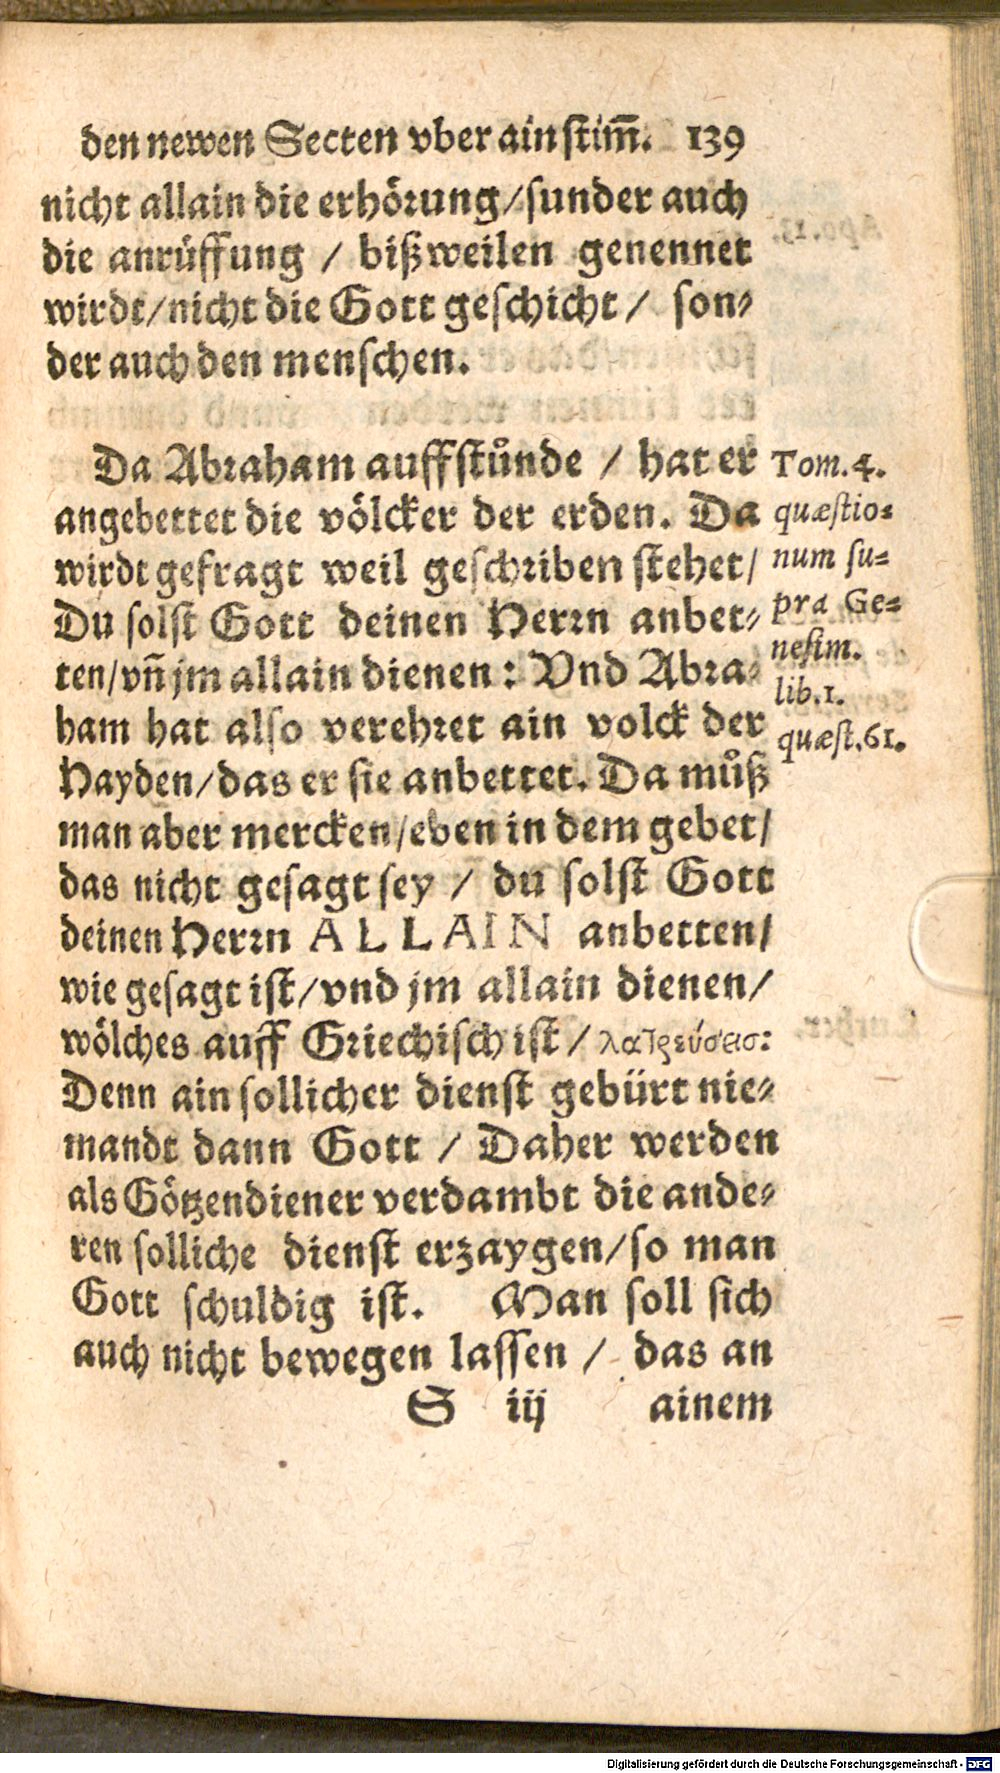 den newen Secten vber ainstim̃. 139
nicht allain die erhörung/sunder auch
die anrüffung / bißweilen genennet
wirdt/nicht die Gott geschicht / son⸗
der auch den menschen.
Da Abraham auffstůnde / hat er
angebettet die völcker der erden. Da
wirdt gefragt weil geschriben stehet/
Du solst Gott deinen Herrn anbet⸗
ten/vñ jm allain dienen: Vnd Abra⸗
ham hat also verehret ain volck der
Hayden/das er sie anbettet. Da můß
man aber mercken/eben in dem gebet/
das nicht gesagt sey / du solst Gott
deinen Herrn ALLAIN anbetten/
wie gesagt ist/vnd jm allain dienen/
wölches auff Griechisch ist / λατρεύσεισ:
Denn ain sollicher dienst gebürt nie⸗
mandt dann Gott / Daher werden
als Götzendiener verdambt die ande⸗
ren solliche dienst erzaygen/so man
Gott schuldig ist. Man soll sich
auch nicht bewegen lassen / das an
S iij ainem
Tom.4.
quæstio⸗
num su⸗
pra Ge⸗
nesim.
lib.1.
quæst.61.
Digitalisierung gefördert durch die Deutsche Forschungsgemeinschaft - DFG